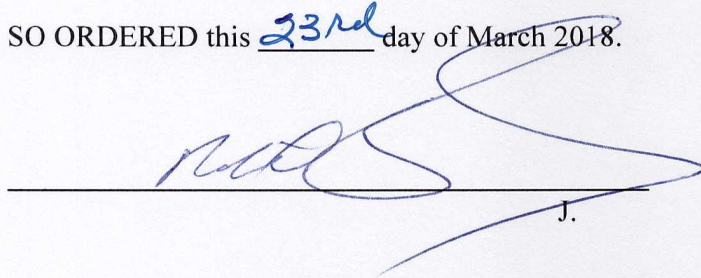 SO ORDERED this 23rd day of March 2018.
J.